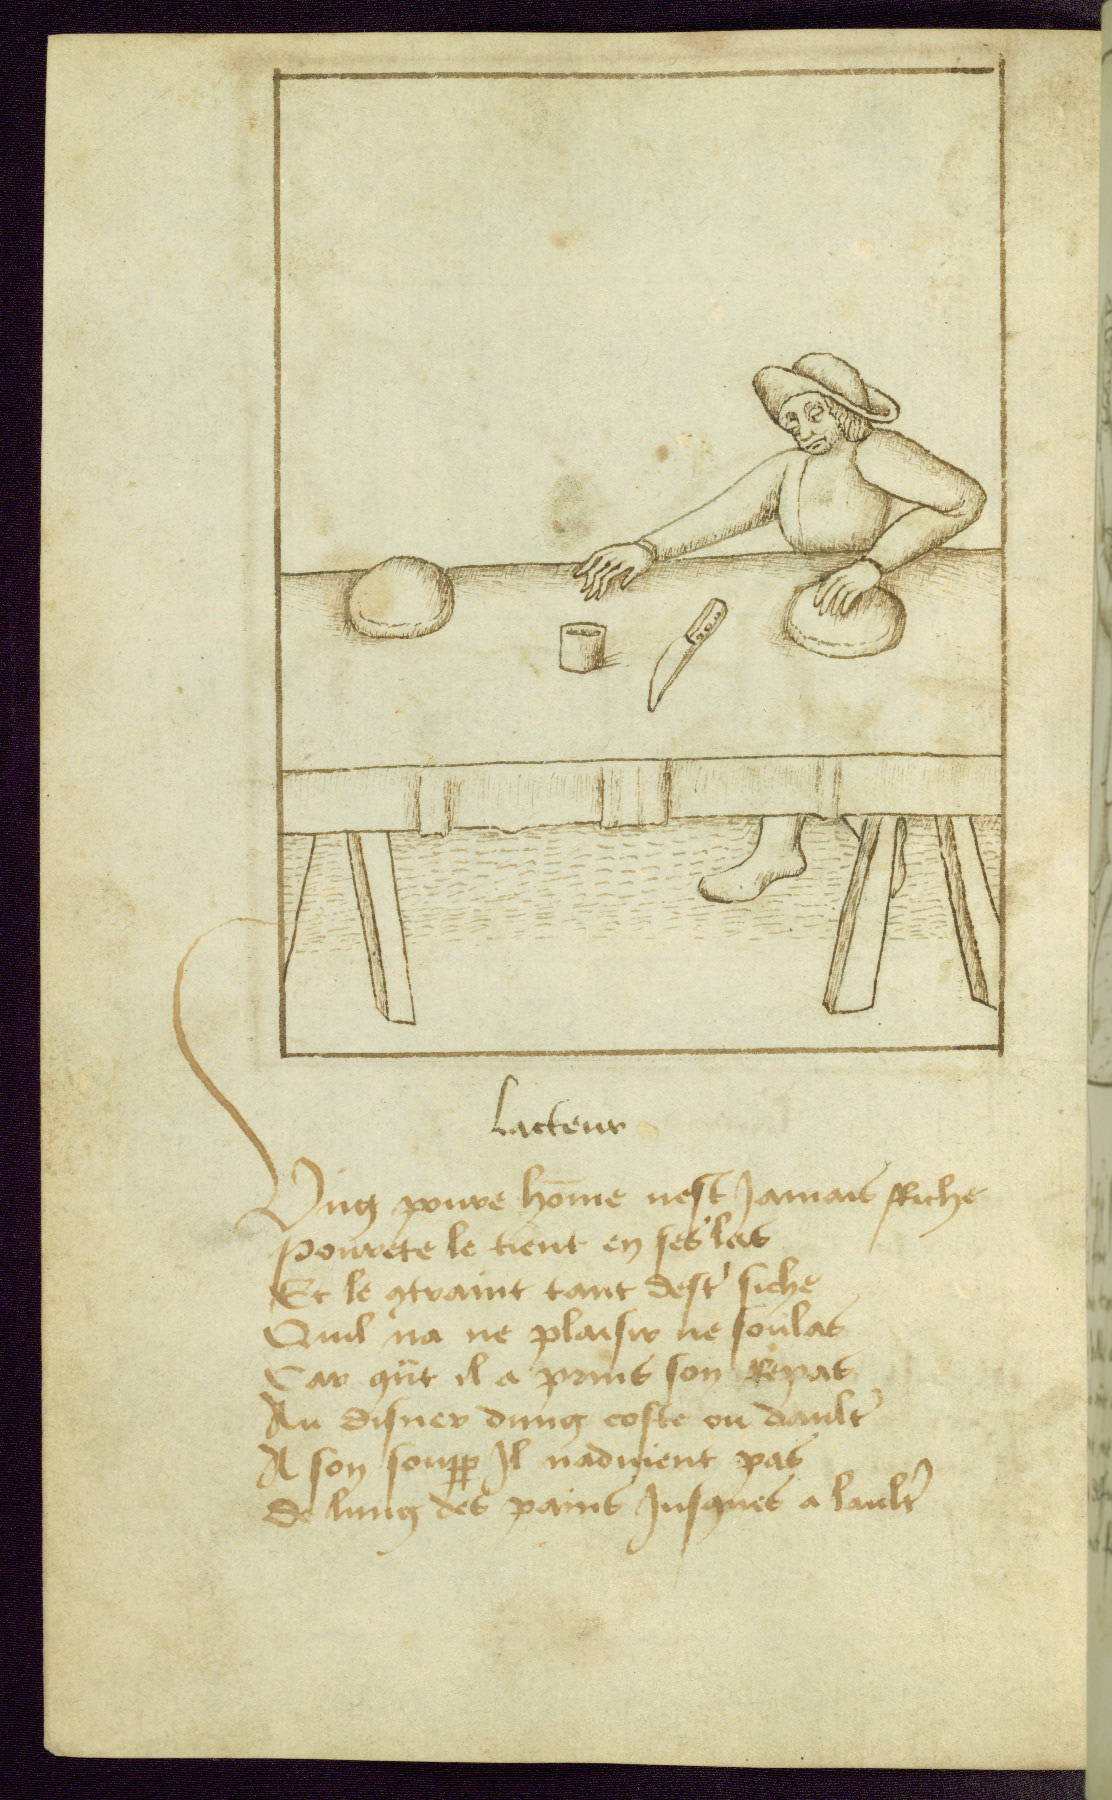 Lacteur
Ung povre hōme nest Jamais Riche
Povrete le tient en ses las
Et le 9traint tant dest' siche
Quil na ne plaisir ne soulas
Car qūt il a prins son Repas
Au disner dung coste ou daultr'
A son soupp Il naduient pas
De lung des pains Jusques a laultr'